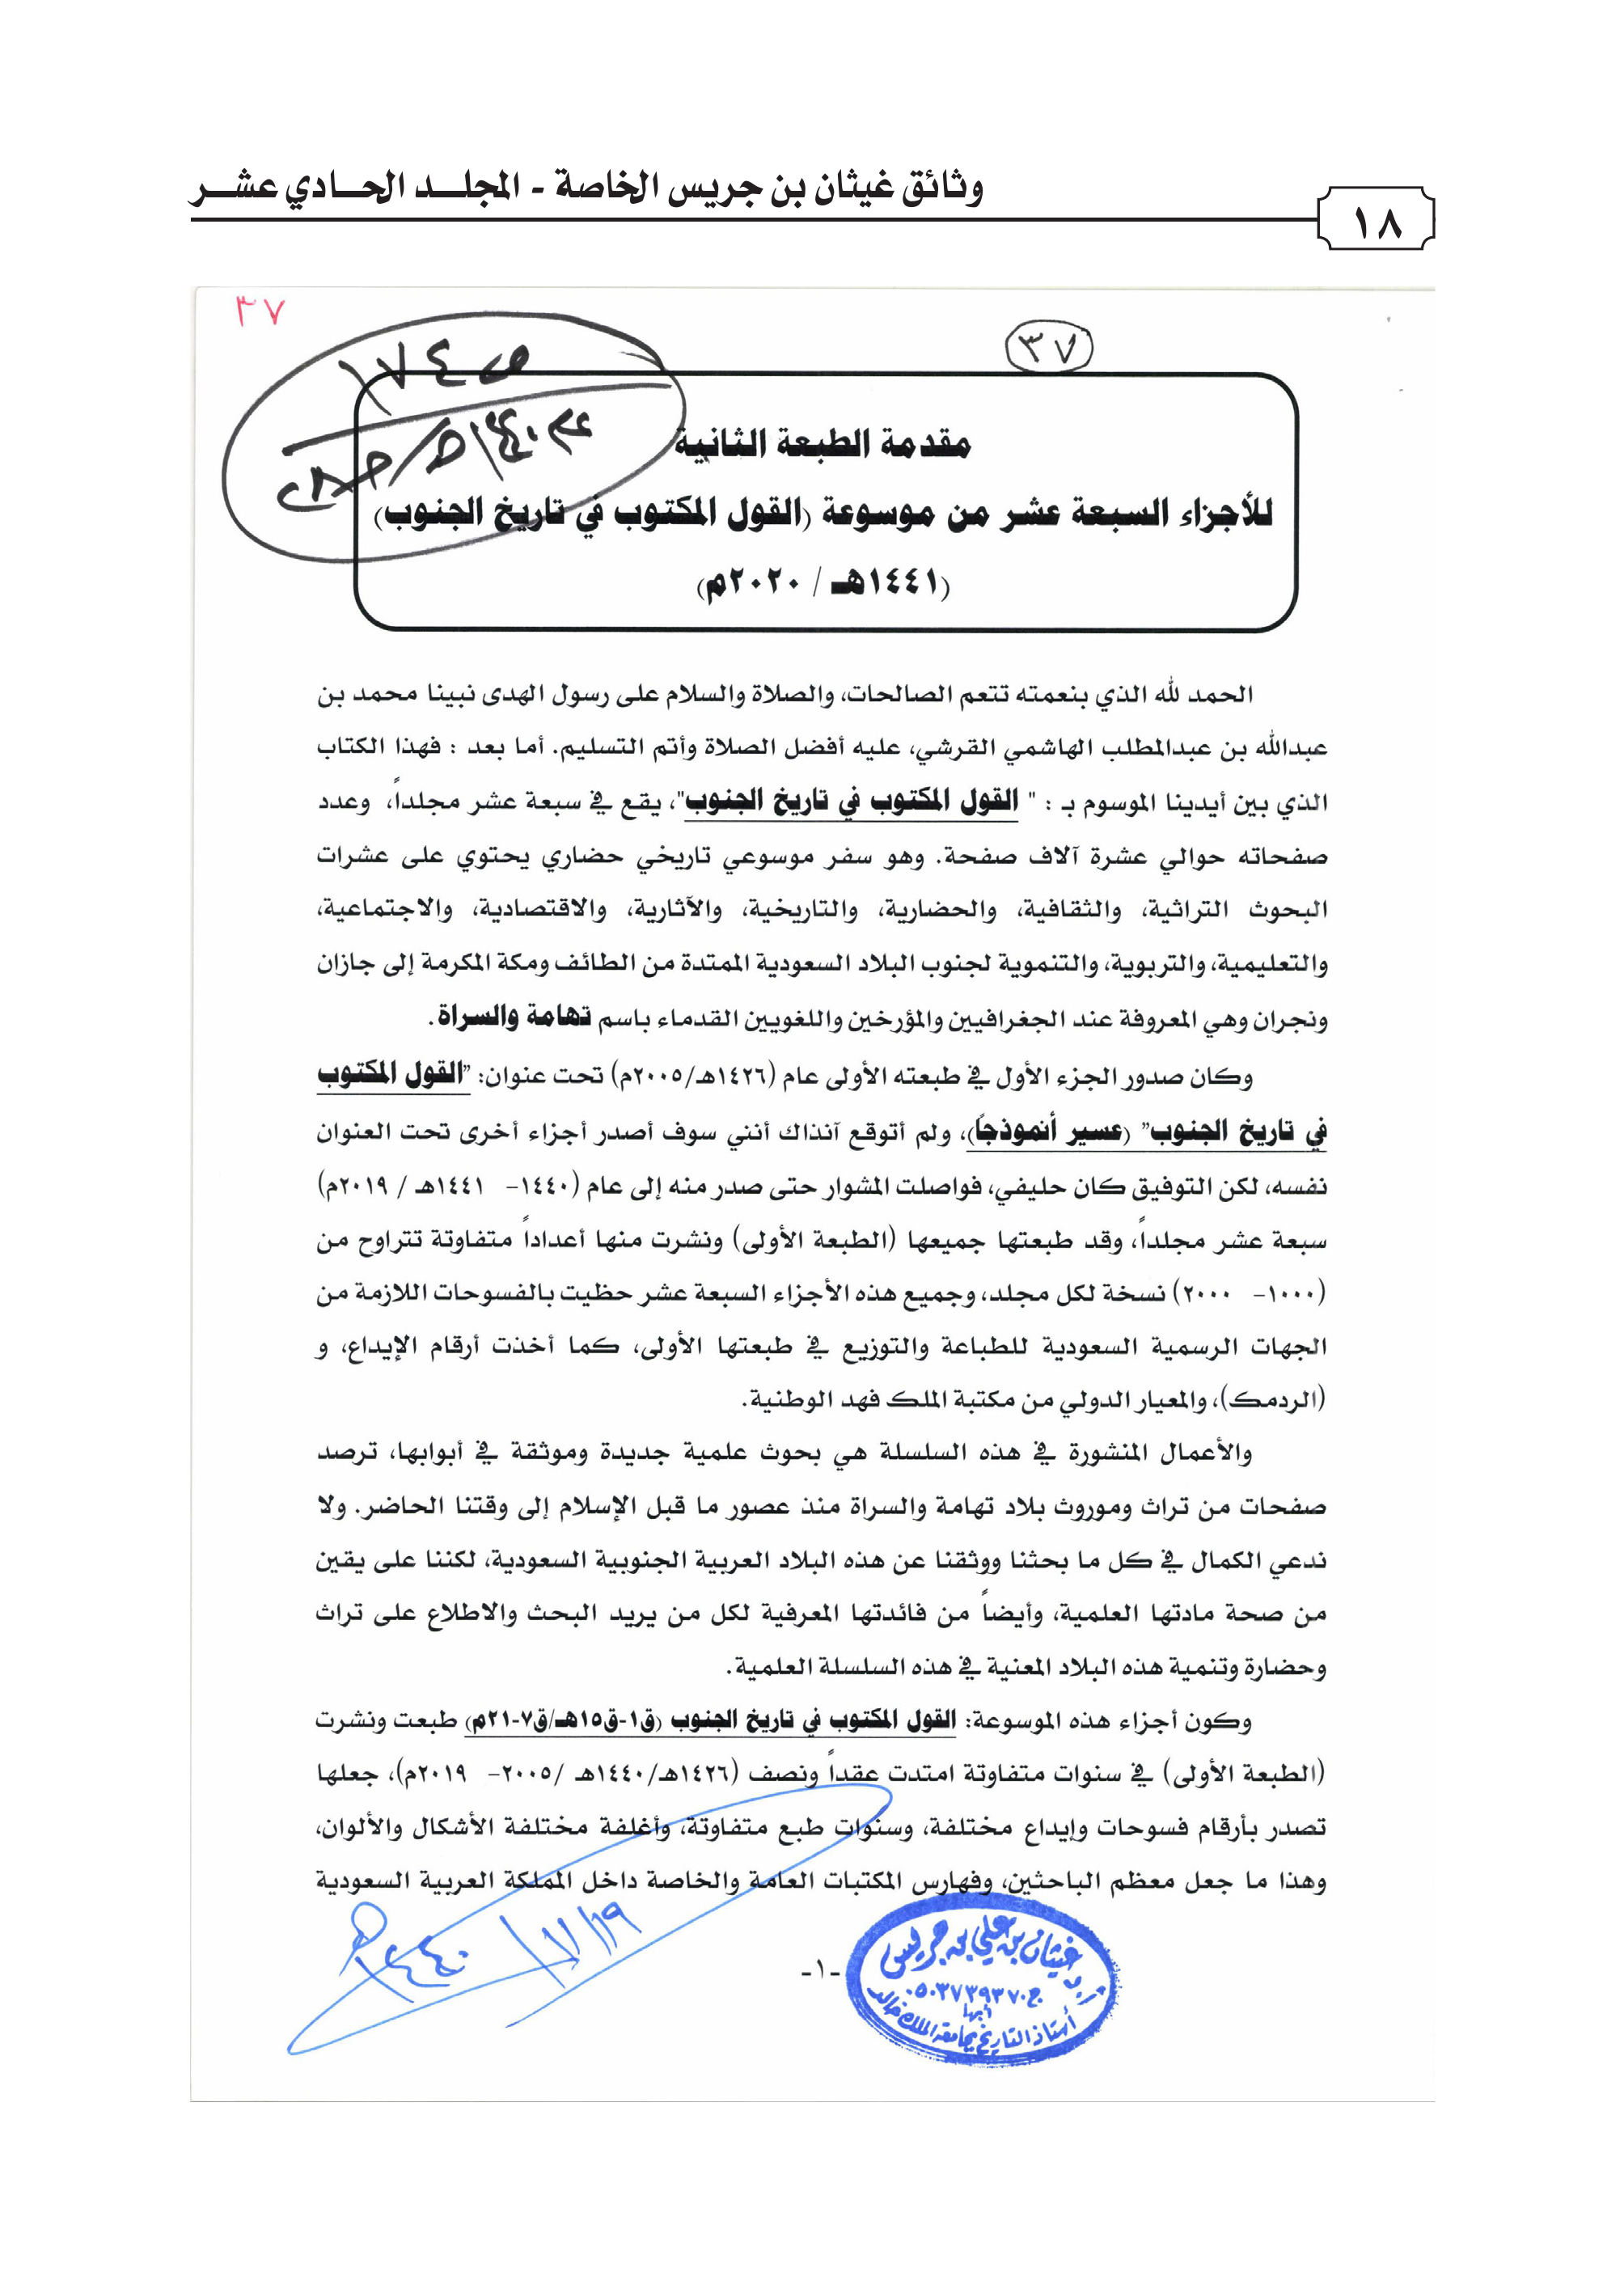 وثائق غيثان بن جريس الخاصة - المجلـــد الحـــادي عشـــر
١٨
٣٧
٣٧
ص ١٧٤
مقدمة الطبعة الثانية
للأجزاء السبعة عشر من موسوعة (القول المكتوب في تاريخ الجنوب)
(١٤٤١هـ / ٢٠٢٠م)
الحمد لله الذي بنعمته تتعم الصالحات، والصلاة والسلام على رسول الهدى نبينا محمد بن
عبدالله بن عبدالمطلب الهاشمي القرشي، عليه أفضل الصلاة وأتم التسليم. أما بعد : فهذا الكتاب
الذي بين أيدينا الموسوم بـ : " القول المكتوب في تاريخ الجنوب"، يقع في سبعة عشر مجلداً، وعدد
صفحاته حوالي عشرة آلاف صفحة. وهو سفر موسوعي تاريخي حضاري يحتوي على عشرات
البحوث التراثية، والثقافية، والحضارية، والتاريخية، والآثارية، والاقتصادية، والاجتماعية،
والتعليمية، والتربوية، والتنموية لجنوب البلاد السعودية الممتدة من الطائف ومكة المكرمة إلى جازان
ونجران وهي المعروفة عند الجغرافيين والمؤرخين واللغويين القدماء باسم تهامة والسراة.
وكان صدور الجزء الأول في طبعته الأولى عام (١٤٢٦هـ/٢٠٠٥م) تحت عنوان: "القول المكتوب
في تاريخ الجنوب" (عسير أنموذجاً)، ولم أتوقع آنذاك أنني سوف أصدر أجزاء أخرى تحت العنوان
نفسه، لكن التوفيق كان حليفي، فواصلت المشوار حتى صدر منه إلى عام (١٤٤٠- ١٤٤١هـ / ٢٠١٩م)
سبعة عشر مجلداً، وقد طبعتها جميعها (الطبعة الأولى) ونشرت منها أعداداً متفاوتة تتراوح من
(١٠٠٠- ٢٠٠٠) نسخة لكل مجلد، وجميع هذه الأجزاء السبعة عشر حظيت بالفسوحات اللازمة من
الجهات الرسمية السعودية للطباعة والتوزيع في طبعتها الأولى، كما أخذت أرقام الإيداع، و
(الردمك)، والمعيار الدولي من مكتبة الملك فهد الوطنية.
والأعمال المنشورة في هذه السلسلة هي بحوث علمية جديدة وموثقة في أبوابها، ترصد
صفحات من تراث وموروث بلاد تهامة والسراة منذ عصور ما قبل الإسلام إلى وقتنا الحاضر. ولا
ندعي الكمال في كل ما بحثنا ووثقنا عن هذه البلاد العربية الجنوبية السعودية، لكننا على يقين
من صحة مادتها العلمية، وأيضاً من فائدتها المعرفية لكل من يريد البحث والاطلاع على تراث
وحضارة وتنمية هذه البلاد المعنية في هذه السلسلة العلمية.
وكون أجزاء هذه الموسوعة: القول المكتوب في تاريخ الجنوب (ق١-ق١٥هـ/ق٧-٢١م) طبعت ونشرت
(الطبعة الأولى) في سنوات متفاوتة امتدت عقداً ونصف (١٤٢٦هـ/١٤٤٠هـ /٢٠٠٥- ٢٠١٩م)، جعلها
تصدر بأرقام فسوحات وإيداع مختلفة، وسنوات طبع متفاوتة، وأغلفة مختلفة الأشكال والألوان،
وهذا ما جعل معظم الباحثين، وفهارس المكتبات العامة والخاصة داخل المملكة العربية السعودية
-١-
أ.د غيثان بن علي بن جريس
ج ٠٥٠٣٧٣٩٣٧٠
أبها
أستاذ التاريخ بجامعة الملك خالد